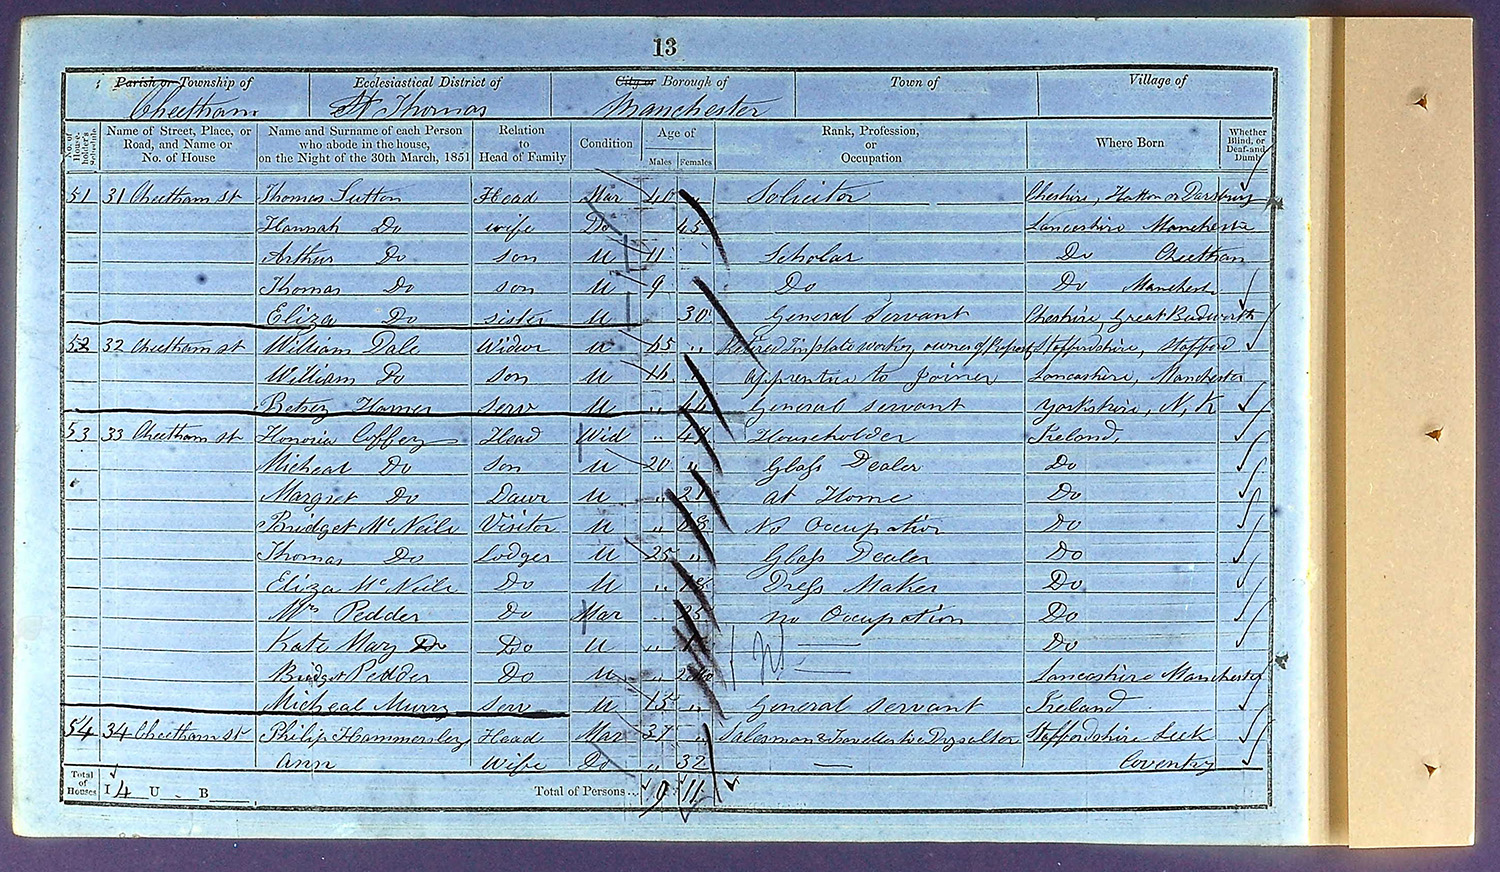 13
Parish or Township of Ecclesiastical District of City or Borough of Town of Village of
Cheetham St Thomas Manchester
No. of House-holder's Schedule Name of Street, Place, or Road, and Name or No. of House Name and Surname of each Person who abode in the house, on the Night of the 30th March, 1851 Relation to Head of Family Condition Age of Males Females Rank, Profession, or Occupation Where Born Whether Blind, or Deaf-and-Dumb
51 31 Cheetham st Thomas Sutton Head Mar 40 Solicitor Cheshire, Hatton or Daresbury
Hannah Do wife Do 45 Lancashire Manchester
Arthur Do son U 11 Scholar Do Cheetham
Thomas Do son U 9 Do Do Manchester
Eliza Do sister U 30 General Servant Cheshire, Great Budworth
52 32 Cheetham st William Dale Widwr U 65 " Retired Tinplate worker, owner of Staffordshire, Stafford
William Do son U 16 " apprentice to Joiner Lancashire, Manchester
Betsey Horner serv U " General servant Yorkshire, N, K
53 33 Cheetham st Honoria Coffey Head Wid " 47 Householder Ireland,
Micheal Do son U 20 " Glass Dealer Do
Margret Do Daur U " 21 at Home Do
Bridget Mc Neile Visitor U " No Occupation Do
Thomas Do Lodger U 25 " Glass Dealer Do
Eliza Mc Neile Do U " 18 Dress Maker Do
Mrs Pedder Do Mar " 25 no Occupation Do
Kate Mary Do Do U " Do
Bridget Pedder Do U " Lancashire Manchester
Micheal Murry serv U 15 " General servant Ireland
54 34 Cheetham st Philip Hammersley Head Mar 37 " Salesman & Traveller to a Drysalter Staffordshire Leek
Ann Wife Do " 32 — Coventry
Total of Houses I 4 U - B Total of Persons... 9 11